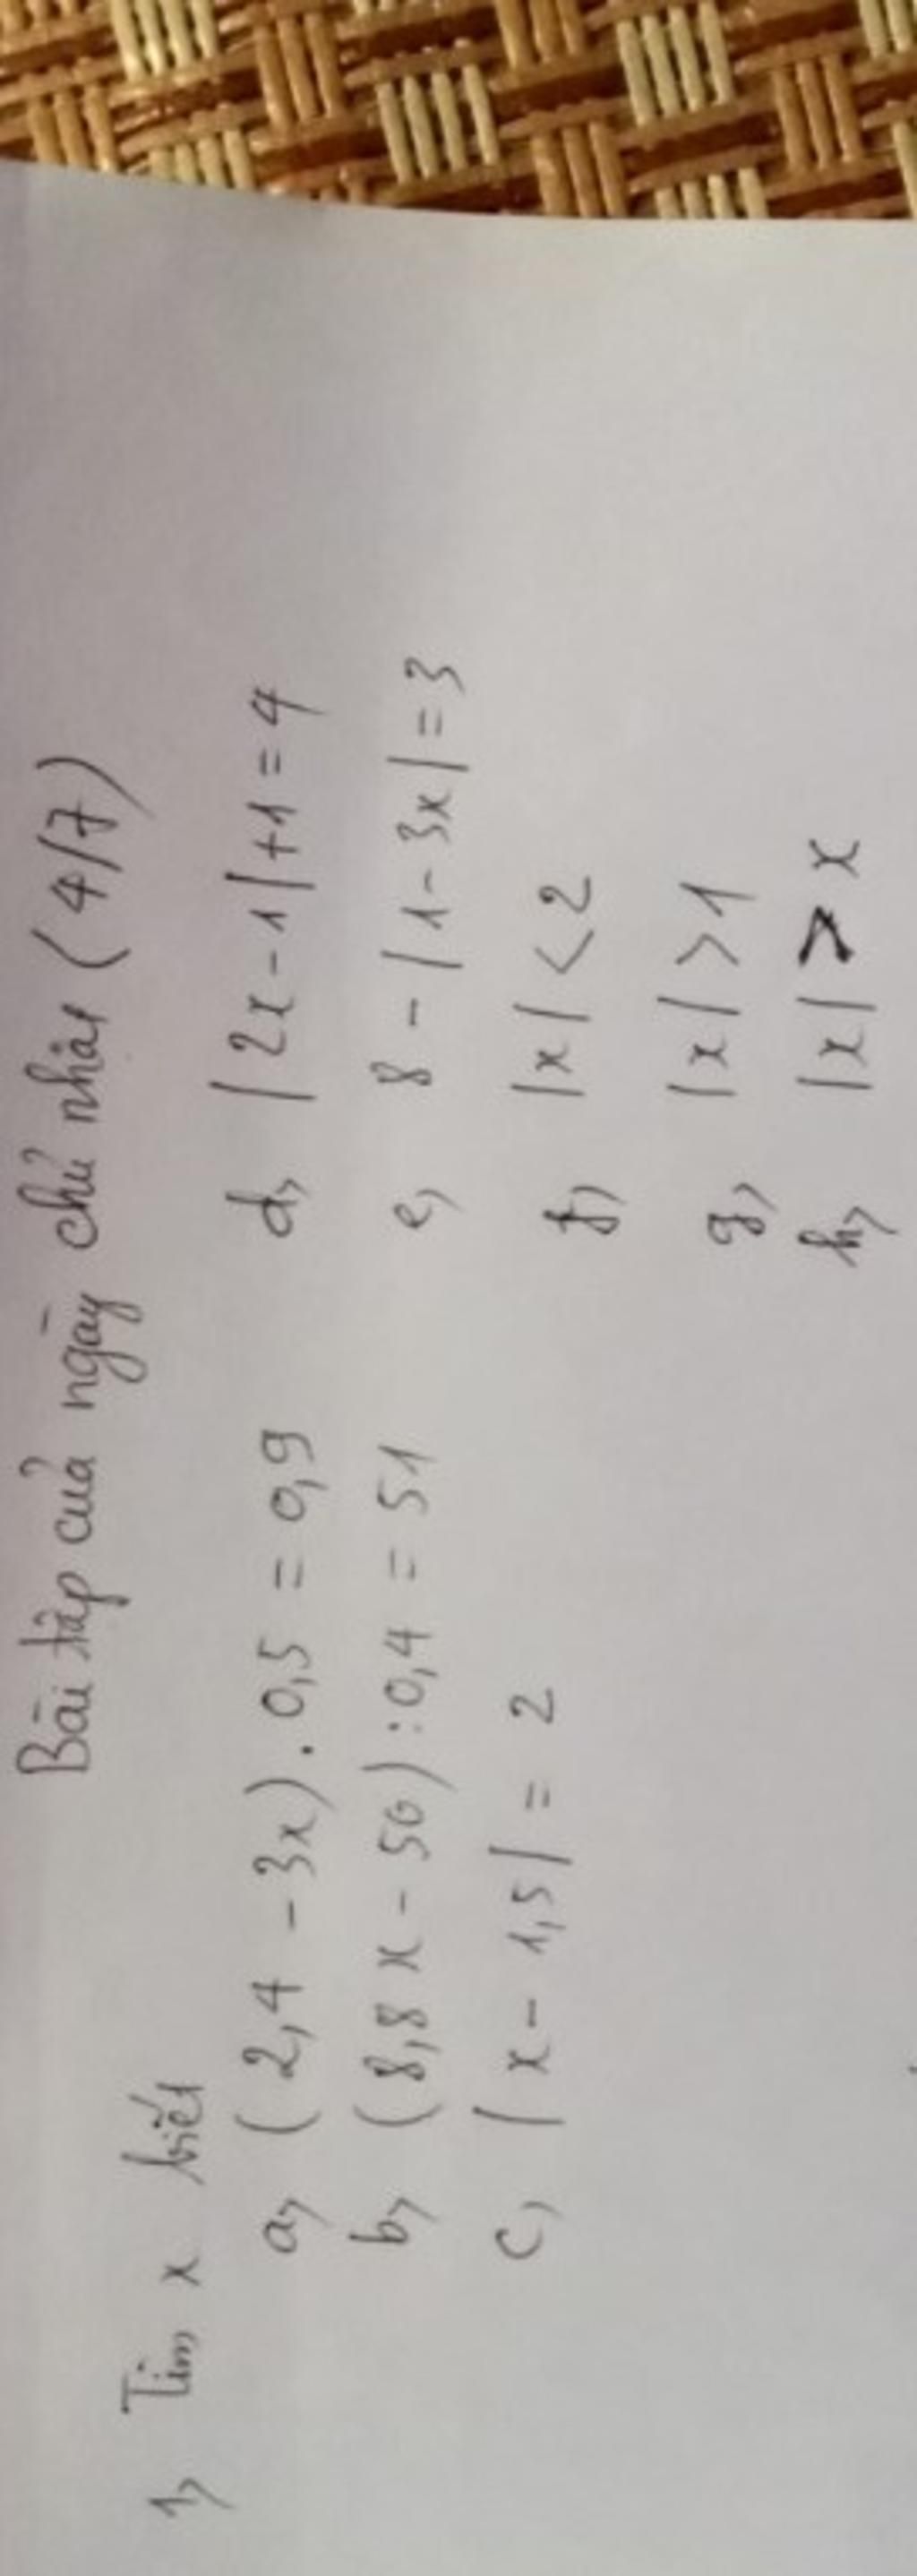 Bài tập của ngày chủ nhật (4/7)
1, Tìm x biết
a, (2,4 - 3x) . 0,5 = 0,9
b, (8,8x - 50) : 0,4 = 51
c, |x - 1,5| = 2
d, |2x - 1| + 1 = 4
e, 8 - |1 - 3x| = 3
f, |x| < 2
g, |x| > 1
h, |x| > x